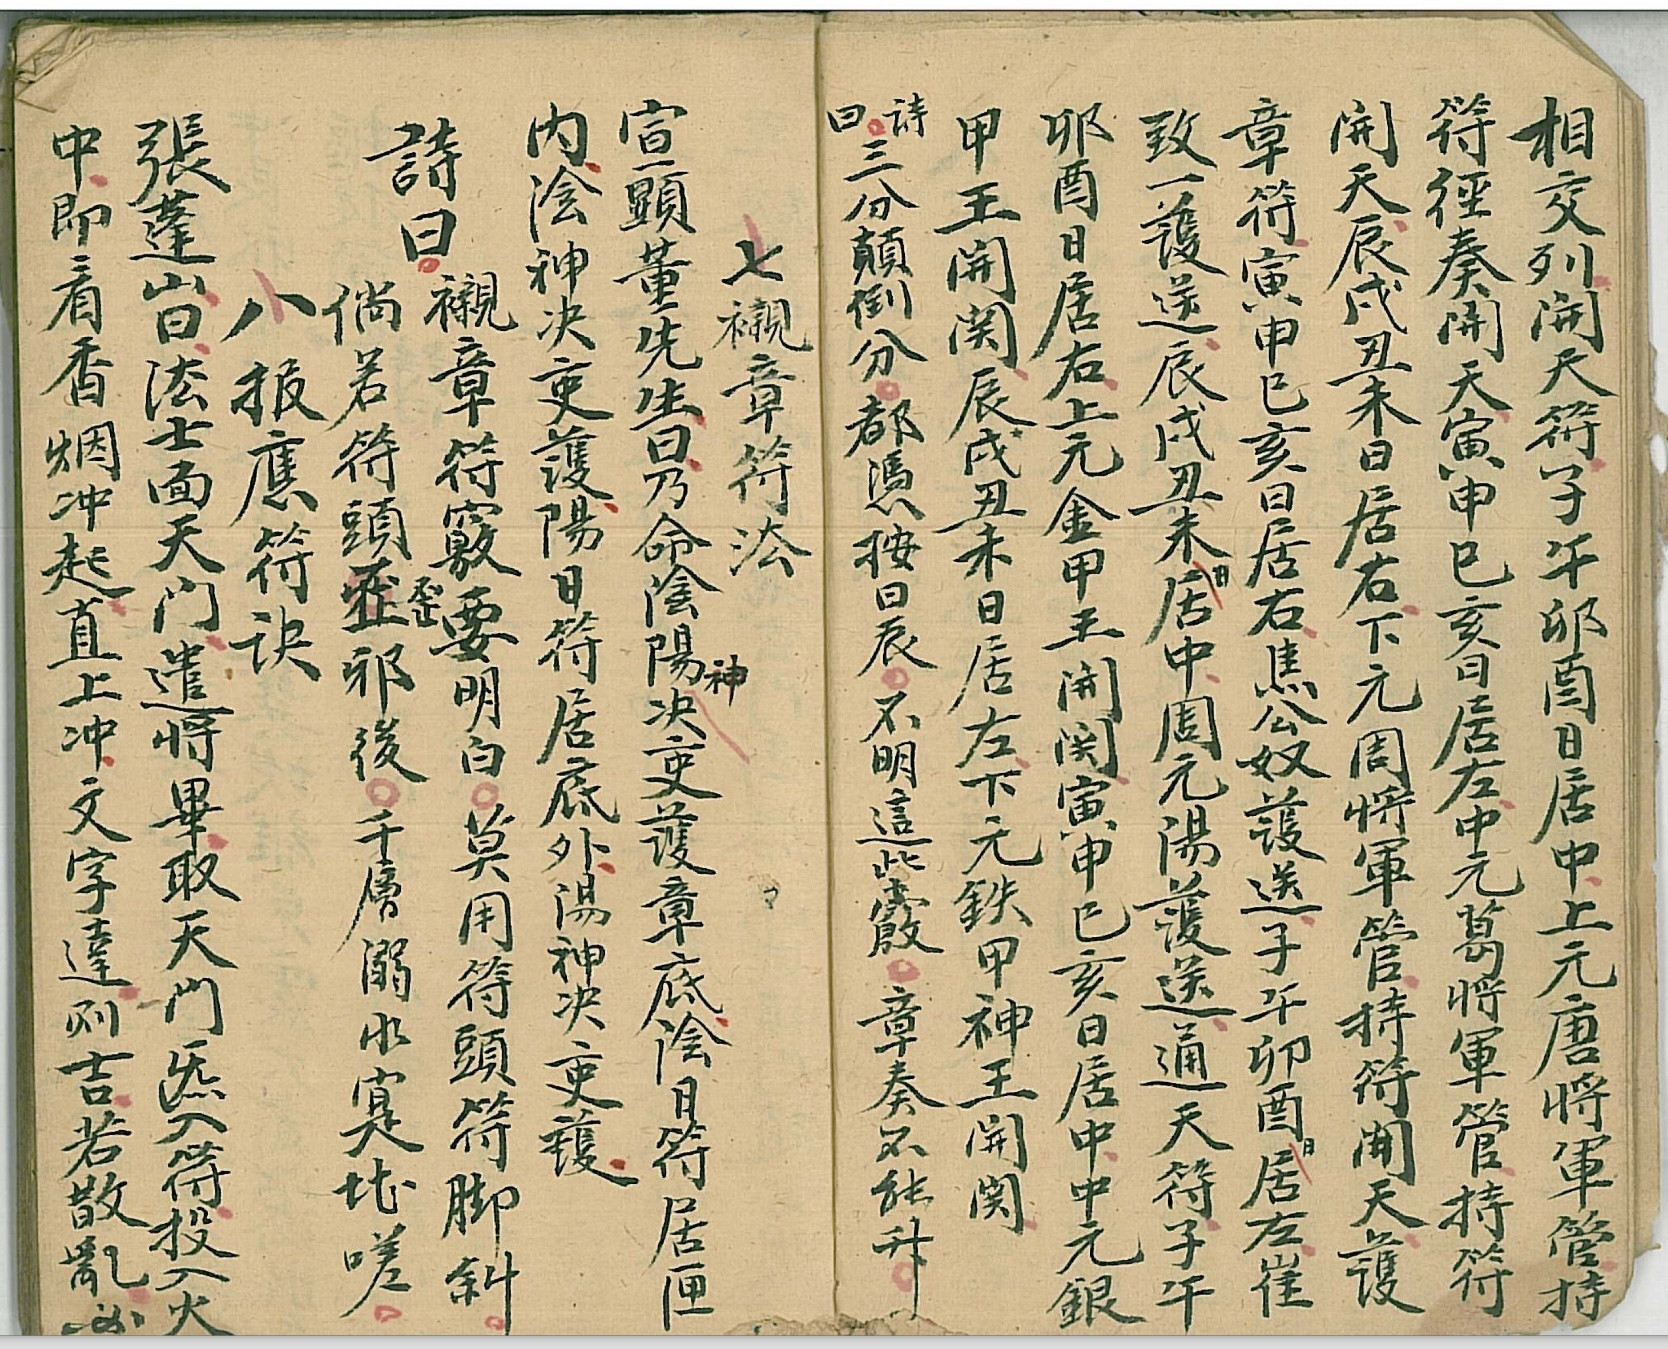 相交列開天符子午卯酉日居中上元唐將軍管持
符徑奏開天寅申巳亥日居左中元葛將軍管持符
開天辰戌丑未日居右下元周將軍管持符開天護
章符寅申巳亥日居右焦公奴護送子午卯酉日居左崔
致一護送辰戌丑未日居中周元陽護送通天符子午
卯酉日居右上元金甲王開関寅申巳亥日居中中元銀
甲王開関辰戌丑未日居左下元鉄甲神王開関
詩曰三分顛倒分都憑按日辰不明這些竅章奏不能升
七襯章符法
宣顕董先生曰乃命陰陽神决吏護章底陰日符居匣
内陰神决吏護陽日符居底外陽神决吏護
詩曰襯章符竅要明白莫用符頭符脚斜
倘若符頭歪邪後千層溺水寔堪嗟
八报應符訣
張蓬山曰法士面天門遣將畢取天門炁入符投入火
中即看香烟冲起直上冲文字達则吉若散亂必